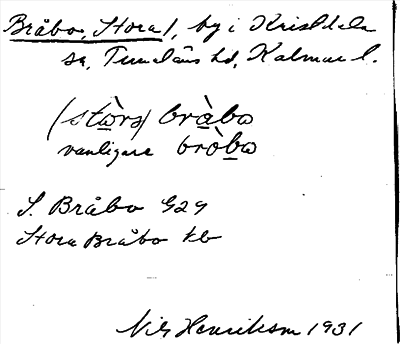 Bråbo, Stora /, by i Kristdala
sn, Tunaläns hd, Kalmar l.
(stòra) bràbo
vanligare bròbo
S. Bråbo G29
Stora Bråbo kb
Nils Henriksson 1931